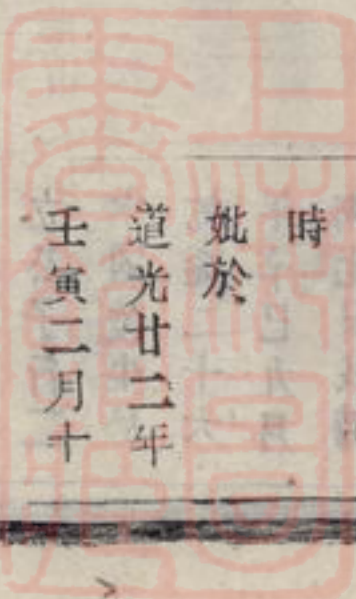 時
妣於
道光廿二年
壬寅二月十